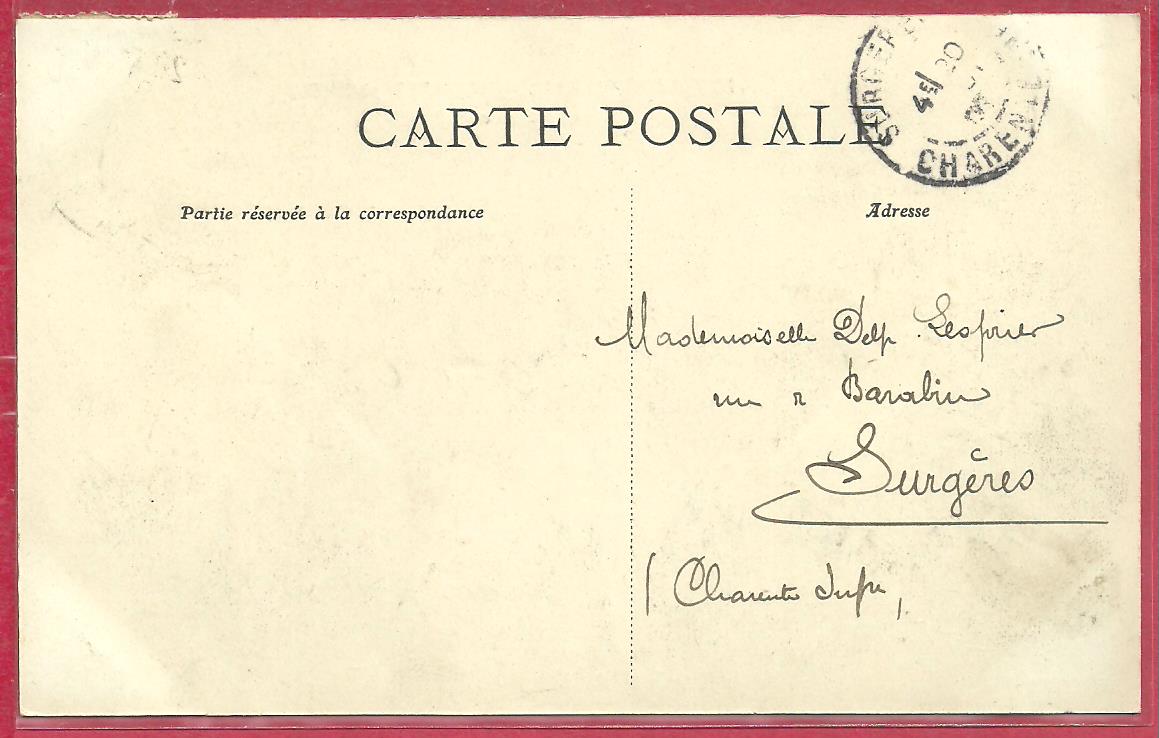 CARTE POSTALE
Partie réservée à la correspondance
Adresse
CHARENTE
20
Mademoiselle Delp. Lesprier
rue Barabin
Surgères
(Charente Infre,